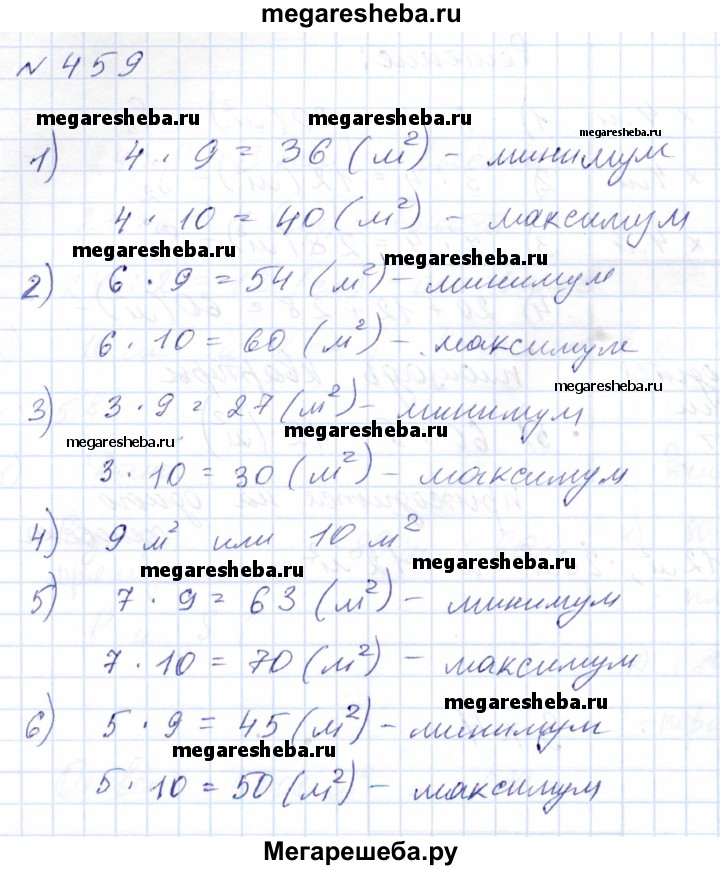 megaresheba.ru
№ 459
megaresheba.ru megaresheba.ru
megaresheba.ru
1) 4 · 9 = 36 (м²) – минимум
4 · 10 = 40 (м²) – максимум
megaresheba.ru megaresheba.ru
2) 6 · 9 = 54 (м²) – минимум
6 · 10 = 60 (м²) – максимум
megaresheba.ru
3) 3 · 9 = 27 (м²) – минимум
megaresheba.ru megaresheba.ru
3 · 10 = 30 (м²) – максимум
4) 9 м² или 10 м²
megaresheba.ru megaresheba.ru
5) 7 · 9 = 63 (м²) – минимум
7 · 10 = 70 (м²) – максимум
megaresheba.ru
6) 5 · 9 = 45 (м²) – минимум
megaresheba.ru
5 · 10 = 50 (м²) – максимум
Мегарешеба.ру